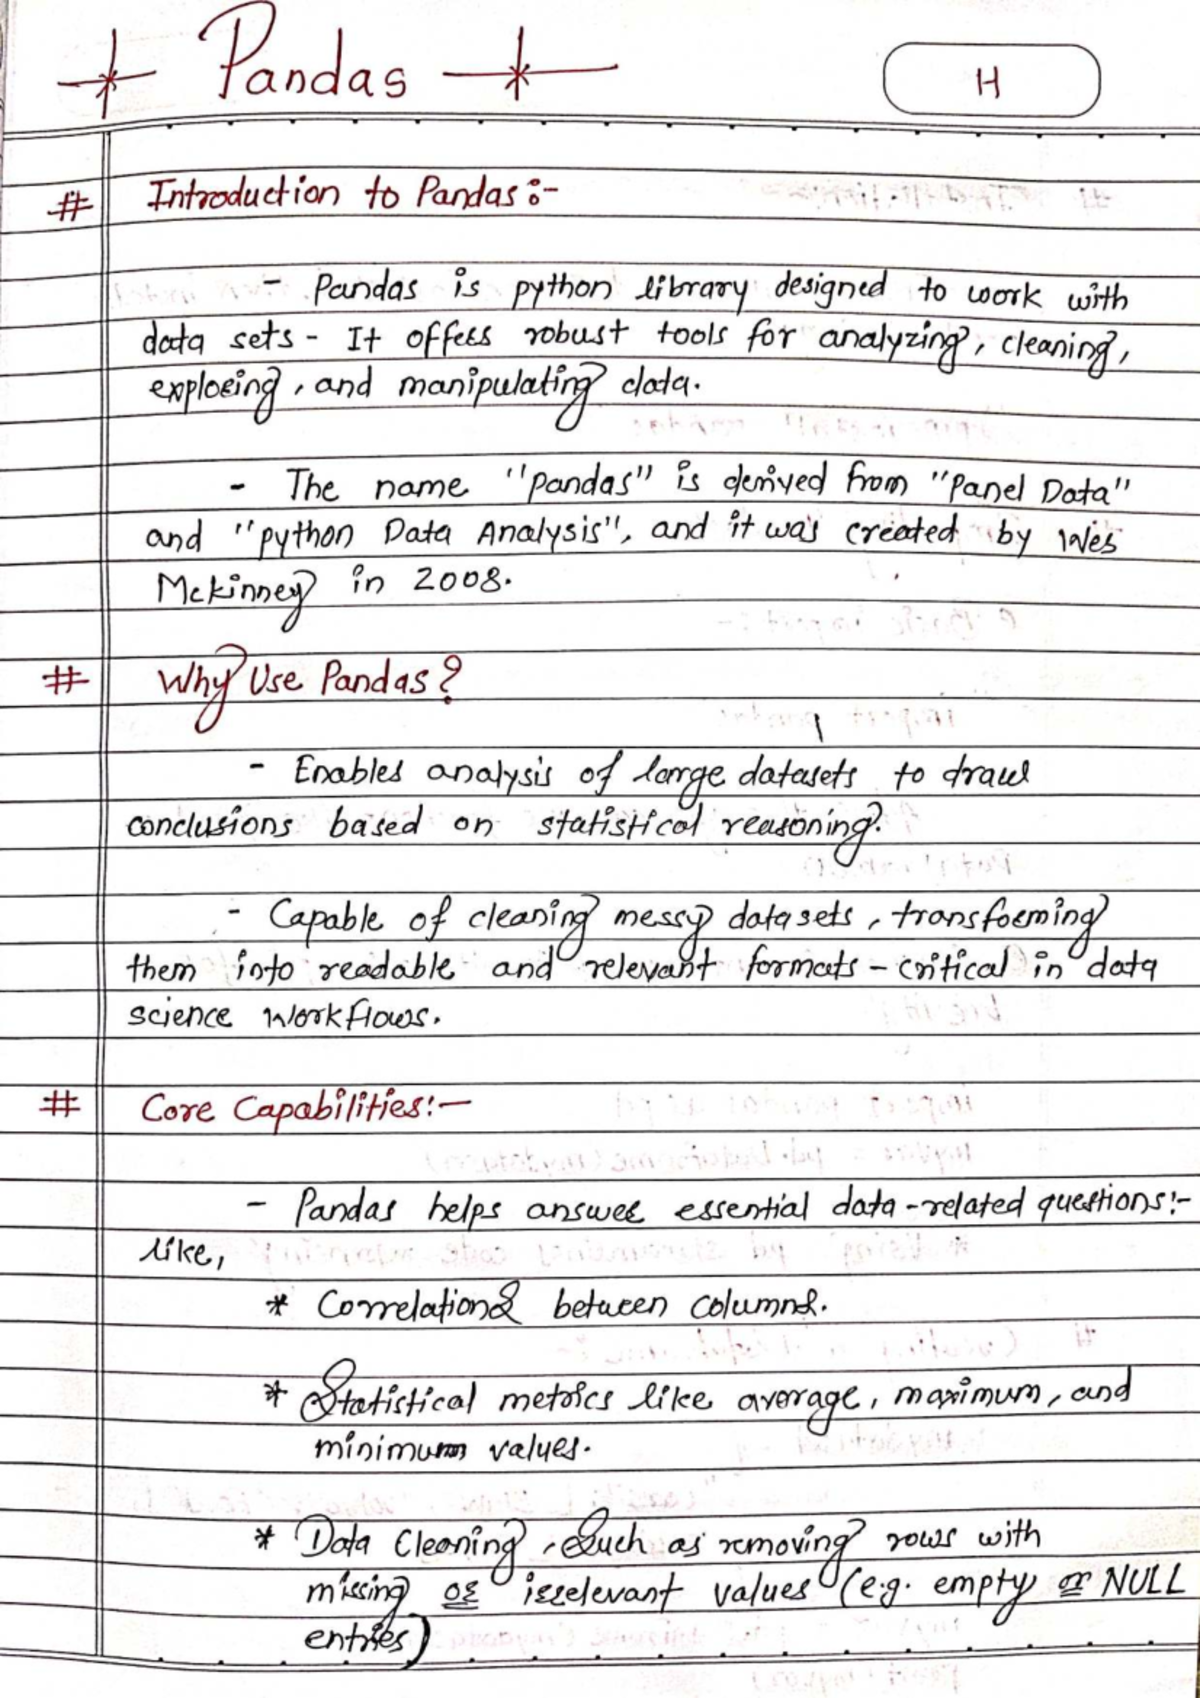 Pandas
H
# Introduction to Pandas:-
- Pandas is python library designed to work with
data sets - It offers robust tools for analyzing, cleaning,
exploring, and manipulating data.
- The name "pandas" is derived from "Panel Data"
and "python Data Analysis", and it was created by Wes
Mckinney in 2008.
# Why Use Pandas?
- Enables analysis of large datasets to draw
conclusions based on statistical reasoning.
- Capable of cleaning messy datasets, transforming
them into readable and relevant formats - critical in data
science workflows.
# Core Capabilities:-
- Pandas helps answer essential data-related questions:-
like,
* Correlations between columns.
* Statistical metrics like average, maximum, and
minimum values.
* Data Cleaning, Such as removing rows with
missing or irrelevant values (e.g. empty or NULL
entries)